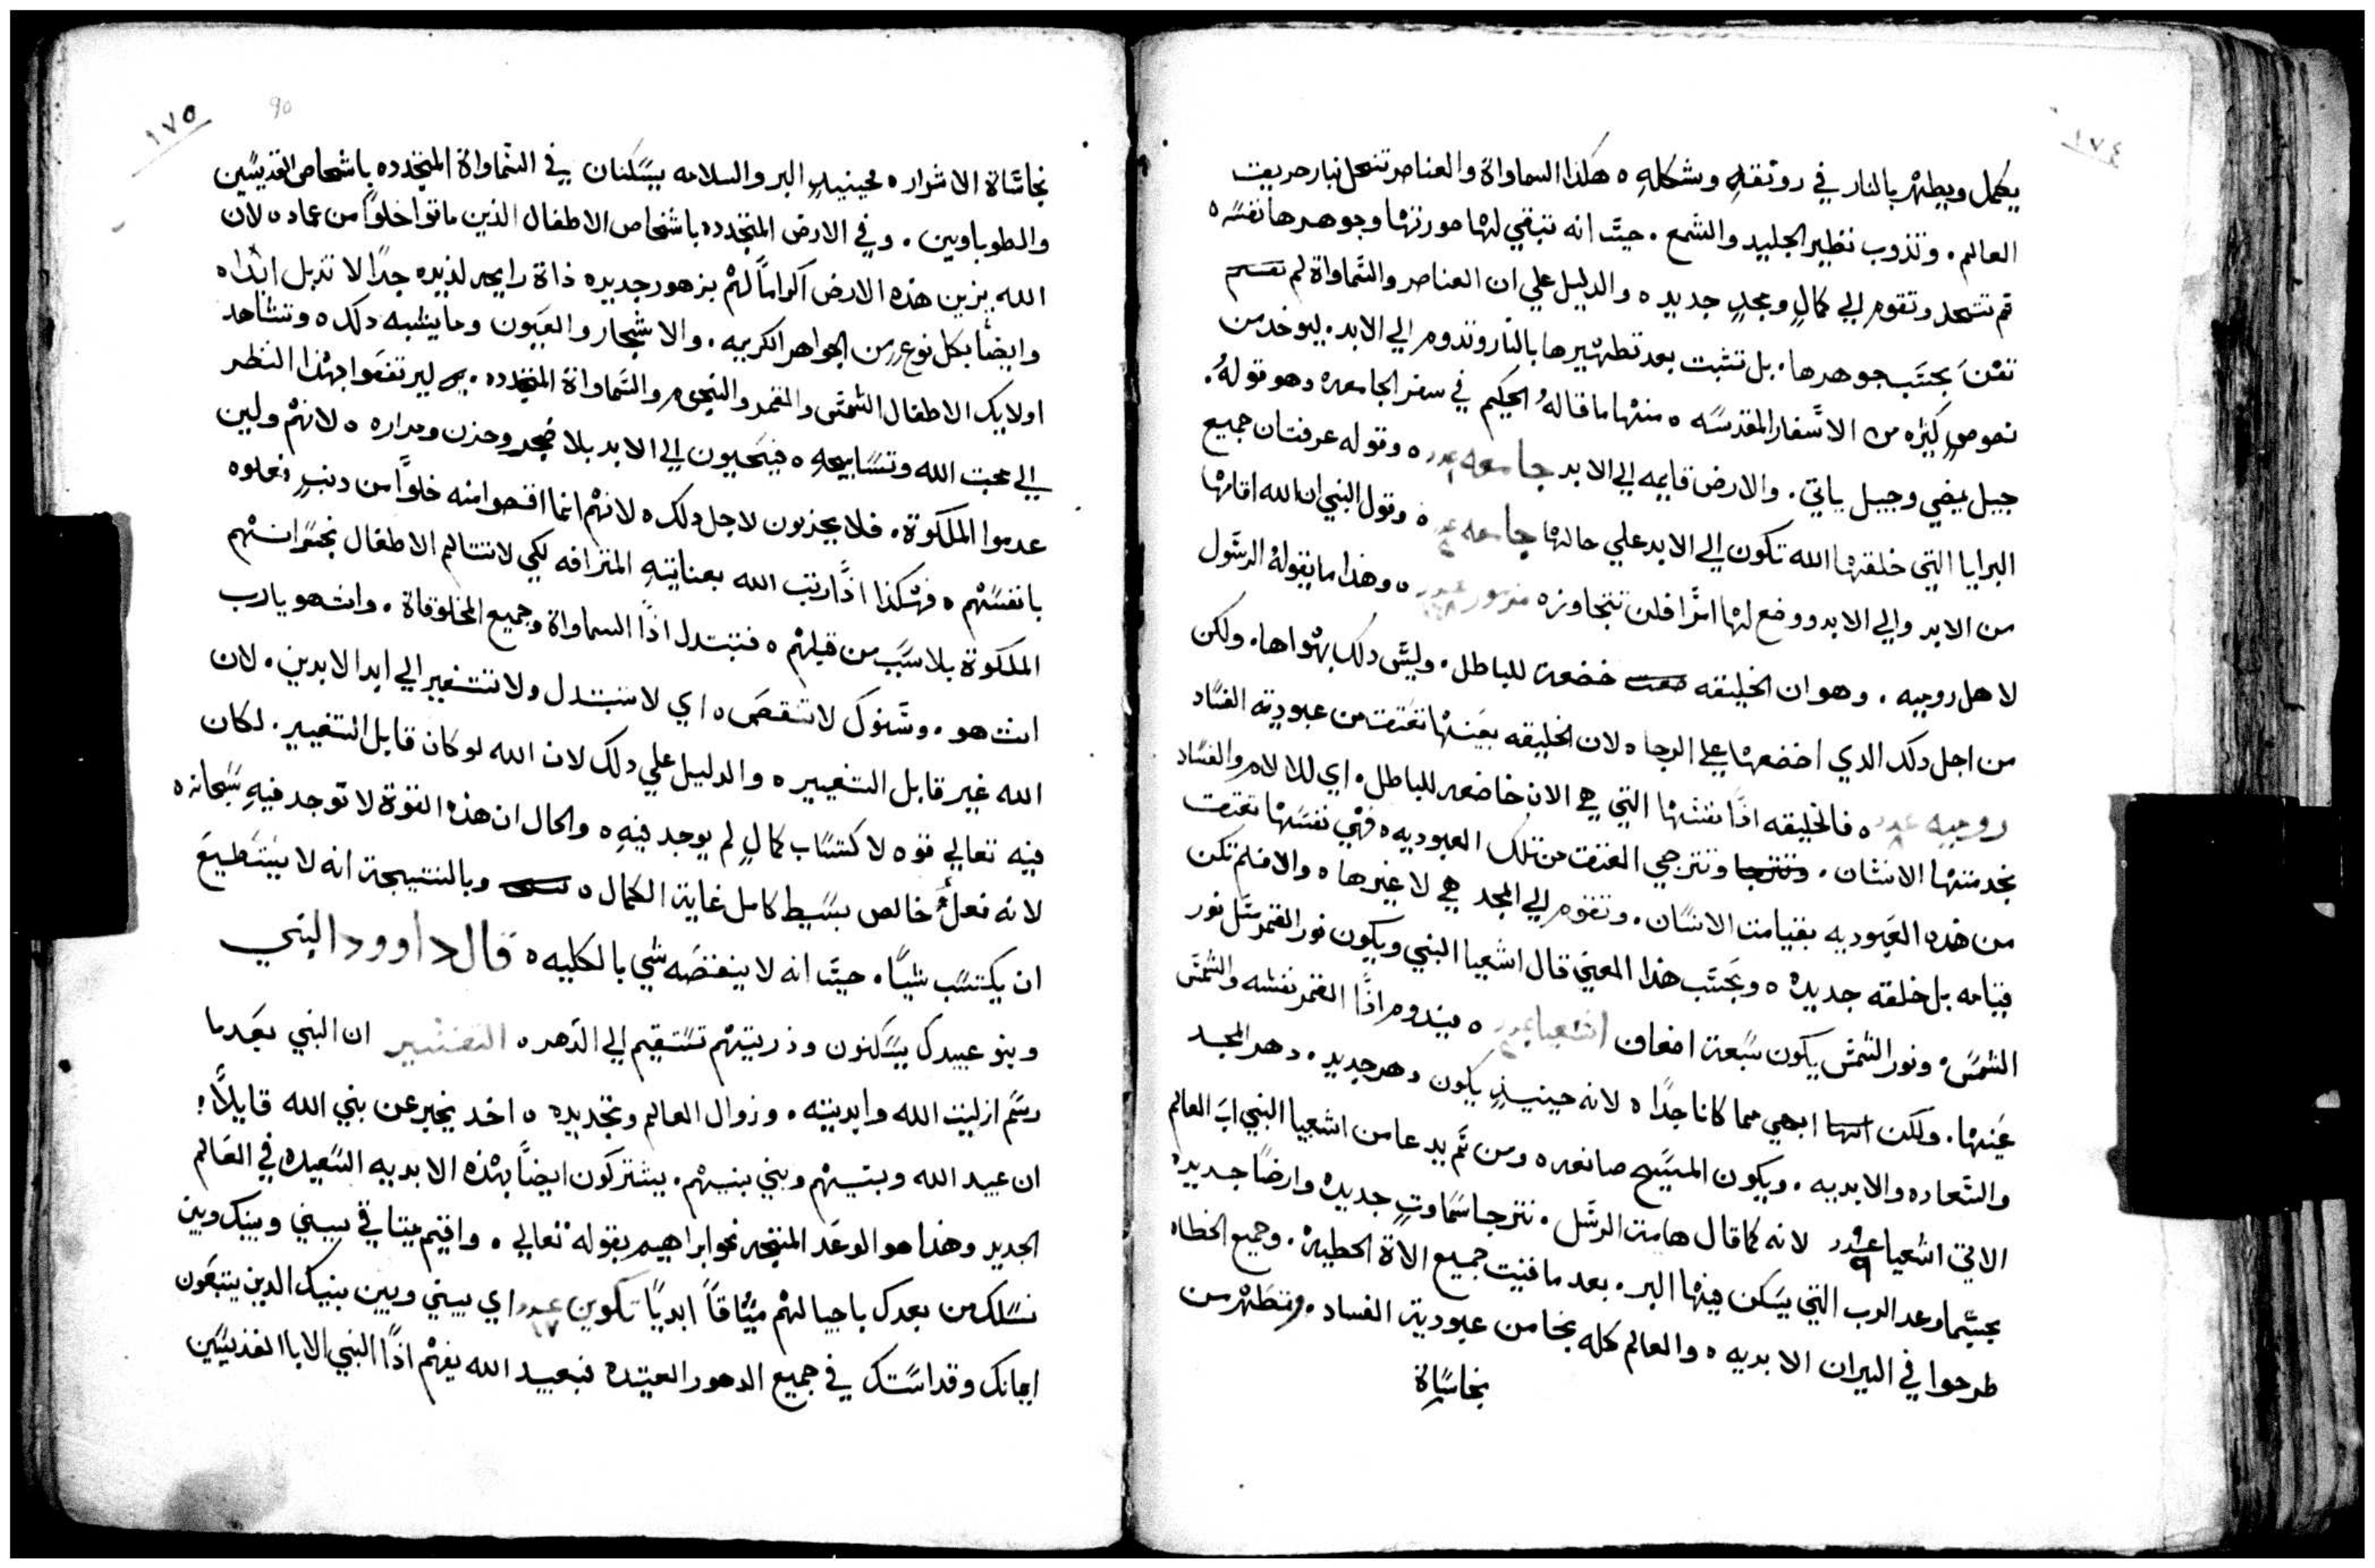 ١٧٤
يكمل ويطهر بالنار في رونقهِ وشكلهِ ٥ هكذا السماواة والعناصر تنحل بنار حريقت
العالم. وتذوب نظير الجليد والشمع. حيتَ انه تبقي لها صورتها وجوهرها نفسه ٥
ثم تتحد وتقوم الي كمالٍ ومجدٍ جديد ٥ والدليل علي ان العناصر والسماواة لم
تفنَ بحسَب جوهرها. بل تثبت بعد تطهيرها بالنار وتدوم الي الابد. ليوخد من
نصوصٍ كثيره من الاسفار المقدسه ٥ منها ما قالهُ الحكيم في سفر الجامعه وهو قولهُ.
جيل يمضي وجيل ياتي. والارض قايمه الي الابد جامعه عدد ٥ وقوله عرفت ان جميع
البرايا التي خلقها الله تكون الي الابد علي حالها جامعه عدد ٥ وقول النبي ان الله اقامها
من الابد والي الابد ووضع لها امرًا فلن تتجاوزه مزمور عدد ٥ وهذا ما يقولهُ الرسول
لاهل روميه. وهو ان الخليقه خضعت للباطل. وليس دلك بهواها. ولكن
من اجل دلك الدي اخضعها علي الرجا ٥ لان الخليقه بعينها تعتق من عبودية الفساد
روميه عدد ٨ ٥ فالخليقه اذًا نفسها التي هي الان خاضعه للباطل. اي للالام والفساد
بخدمتها الانسان. وتترجي العتق من تلك العبوديه ٥ فهي نفسها تعتق
من هذه العبوديه بقيامت الانسان. وتقوم الي المجد هي لا غيرها ٥ والا فلم تكن
قيامه بل خلقه جديده ٥ وبحسَب هذا المعني قال اشعيا النبي ويكون نور القمر مثل نور
الشمس. ونور الشمس يكون سبعة اضعاف اشعيا عدد ٥ فيدوم اذًا القمر نفسه والشمس
عينها. ولكن ابهي مما كانا جدًا ٥ لانه حينيذٍ يكون دهر جديد. دهر المجد
والسعاده والابديه. ويكون المسيح صانعه ٥ ومن ثم يدعا من اشعيا النبي ابَ العالم
الاتي اشعيا عدد ٩ لانه كما قال هامت الرسل. نترجا سماوتٍ جديده وارضًا جديده
بحسَب ما وعد الرب التي يسكن فيها البر. بعد ما فنيت جميع الاة الخطيه. وجميع الخطاه
طرحوا في النيران الابديه ٥ والعالم كله نجا من عبودية الفساد. وتطهر من
نجاساة
١٧٥
90
نجاساة الاشرار ٥ فحينيذٍ البر والسلامه يسكنان في السماواة المتجدده باشخاص القديسين
والطوباويين. وفي الارض المتجدده باشخاص الاطفال الذين ماتوا خلوًا من عماد ٥ لان
الله يزين هذه الارض اكرامًا لهم بزهور جديده ذاة رايحه لذيده جدًا لا تذبل ابدًا ٥
وايضًا بكل نوع من الجواهر الكريمه. والاشجار والعيون وما يشبه دلك ٥ وتشاهد
اولايك الاطفال الشمس والقمر والنجوم والسماواة المتجدده. ليرتفعوا بهذا النظر
الي محبت الله وتسابيحهِ ٥ فيَحيون الي الابد بلا ضجر وحزن ومراره ٥ لانهم ولين
عدموا الملكوة. فلا يحزنون لاجل دلك ٥ لانهم انما اقصوا منه خلوًا من دنبٍ فعلوه
بانفسهم ٥ فهكذا اذًا رتب الله بعنايتهِ المترافه لكي لا تتالم الاطفال بخسرانهم
الملكوة بلا سبَب من قبلهم ٥ فتبتدل اذًا السماواة وجميع المخلوقاة. وانت هو يارب
انت هو. وسنوك لا تنقص ٥ اي لا تتبدل ولا تتغير الي ابد الابدين. لان
الله غير قابل التغيير ٥ والدليل علي دلك لان الله لو كان قابل التغيير. لكان
فيه تعالي قوه لاكتساب كمالٍ لم يوجد فيهِ ٥ والحال ان هذه القوة لا توجد فيهِ سبحانه ٥
لانه فعلٌ خالص بسيط كامل غاية الكمال ٥ وبالنتيجة انه لا يستطيع
ان يكتسب شيًا. حيتَ انه لا ينقصَه شي بالكليه ٥ قال داوود النبي
وبنو عبيدك يسكنون وذريتهم تستقيم الي الدهر ٥ التفسير ان النبي بعد ما
رسم ازليت الله وابديته. وزوال العالم وتجديده ٥ اخد يخبر عن بني الله قايلًا:
ان عبيد الله وبنيهم وبني بنيهم. يشتركون ايضًا بهذه الابديه السعيده في العالم
الجديد وهذا هو الوعد المتجه نحو ابراهيم بقوله تعالي. واقيم ميتاقي بيني وبينك وبين
نسلك من بعدك باجيالهم ميثاقًا ابديًا تكوين عدد ١٧ اي بيني وبين بنيك الدين يتبعون
ايمانك وقداستك في جميع الدهور العتيده فبعبيد الله يفهم اذًا النبي الابا القديسين